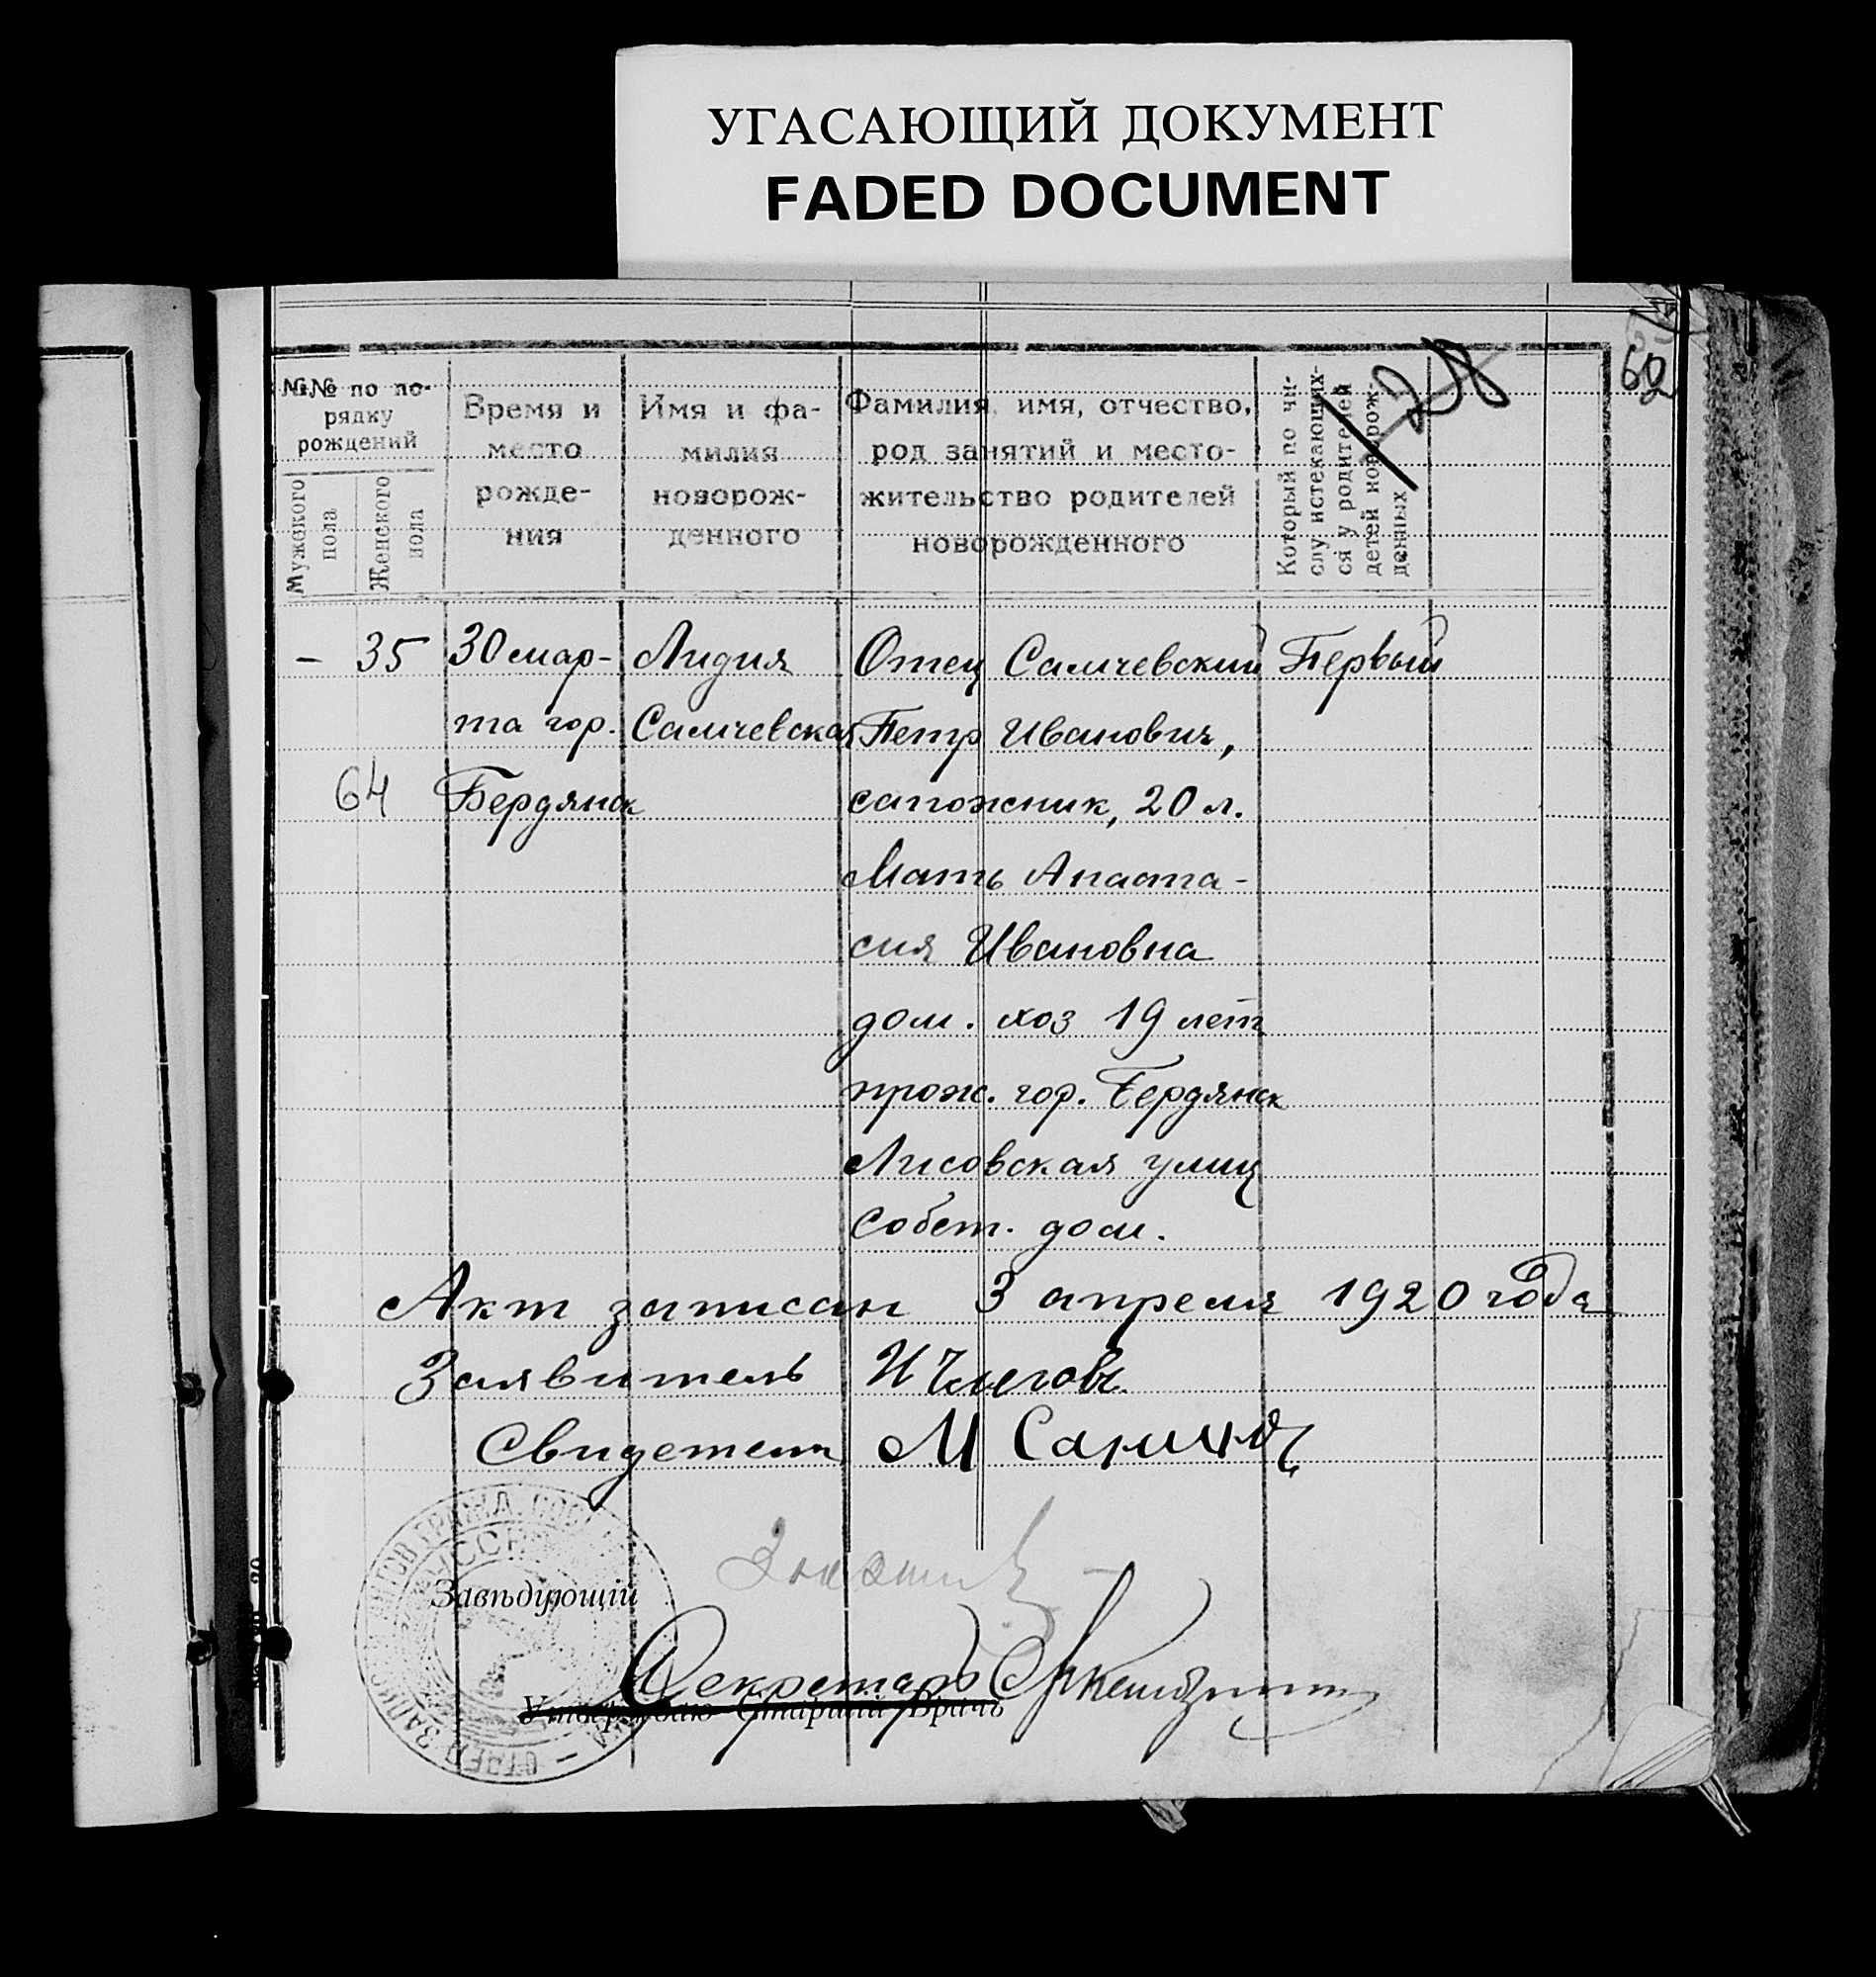 УГАСАЮЩИЙ ДОКУМЕНТ
FADED DOCUMENT
62
28
№№ по по-
рядку
рождений
Мужского
пола
Женского
пола
Время и
место
рожде-
ния
Имя и фа-
милия
новорож-
денного
Фамилия, имя, отчество,
род занятий и место-
жительство родителей
новорожденного
Который по чи-
слу истекающих-
ся у родителей
детей новорож-
денных
– 35
64
30 мар-
та гор.
Бердянск
Лидия
Самчевская
Отец Самчевский
Петр Иванович,
сапожник, 20 л.
Мать Анаста-
сия Ивановна
дом. хоз 19 лет
прож. гор. Бердянск
Лисовская улиц
собст. дом.
Первый
Акт записан 3 апреля 1920 года
Заявитель И
Свидетели М
ОТДЕЛ ЗАПИС ГРАЖД. СОСТ
УССР
Завѣдующій
Секретарь
Утверждаю Старшій Врачъ